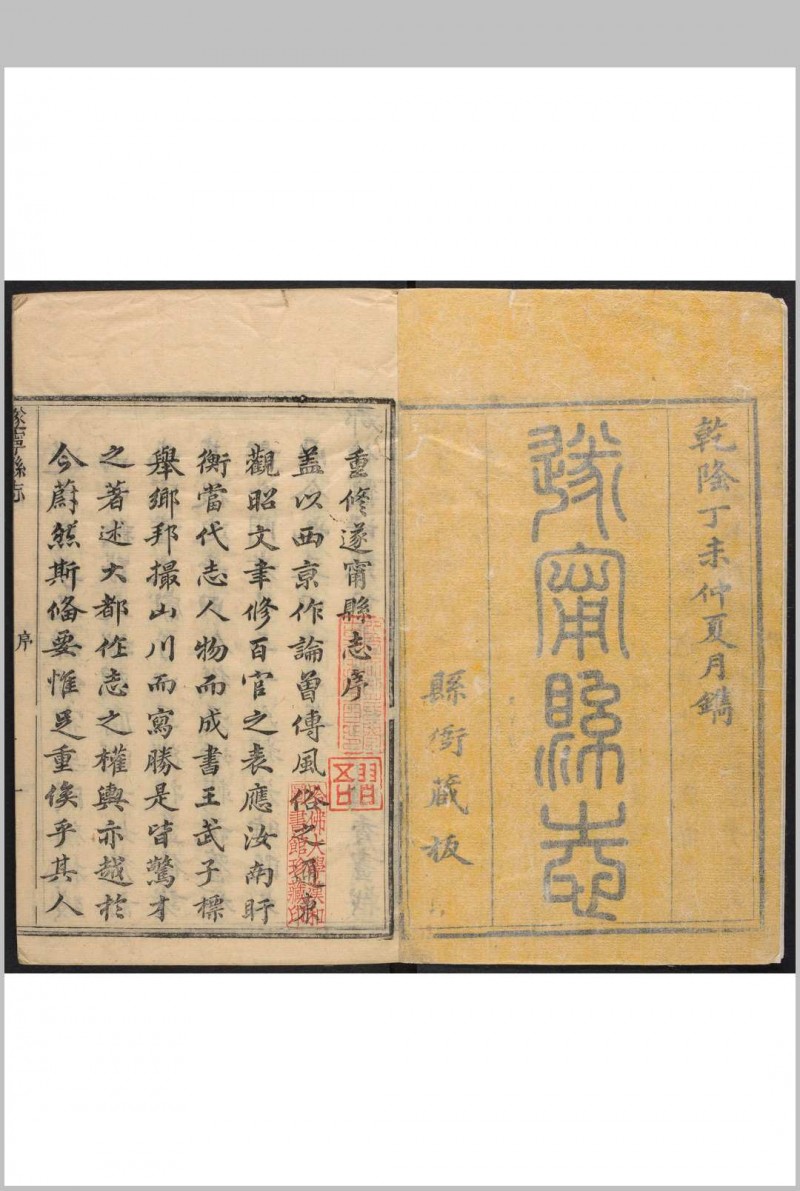 乾隆丁未仲夏月鐫
遂甯縣志
縣衙藏板
重修遂甯縣志序
蓋以西京作論曾傳風俗之通東
觀昭文聿修百官之表應汝南盱
衡當代志人物而成書王武子標
舉鄉邦撮山川而寫勝是皆驚才
之著述大都作志之權輿亦越於
今蔚然斯備要惟是重俟乎其人
遂寧縣志
序
一
哈佛大學漢和圖書館珍藏印